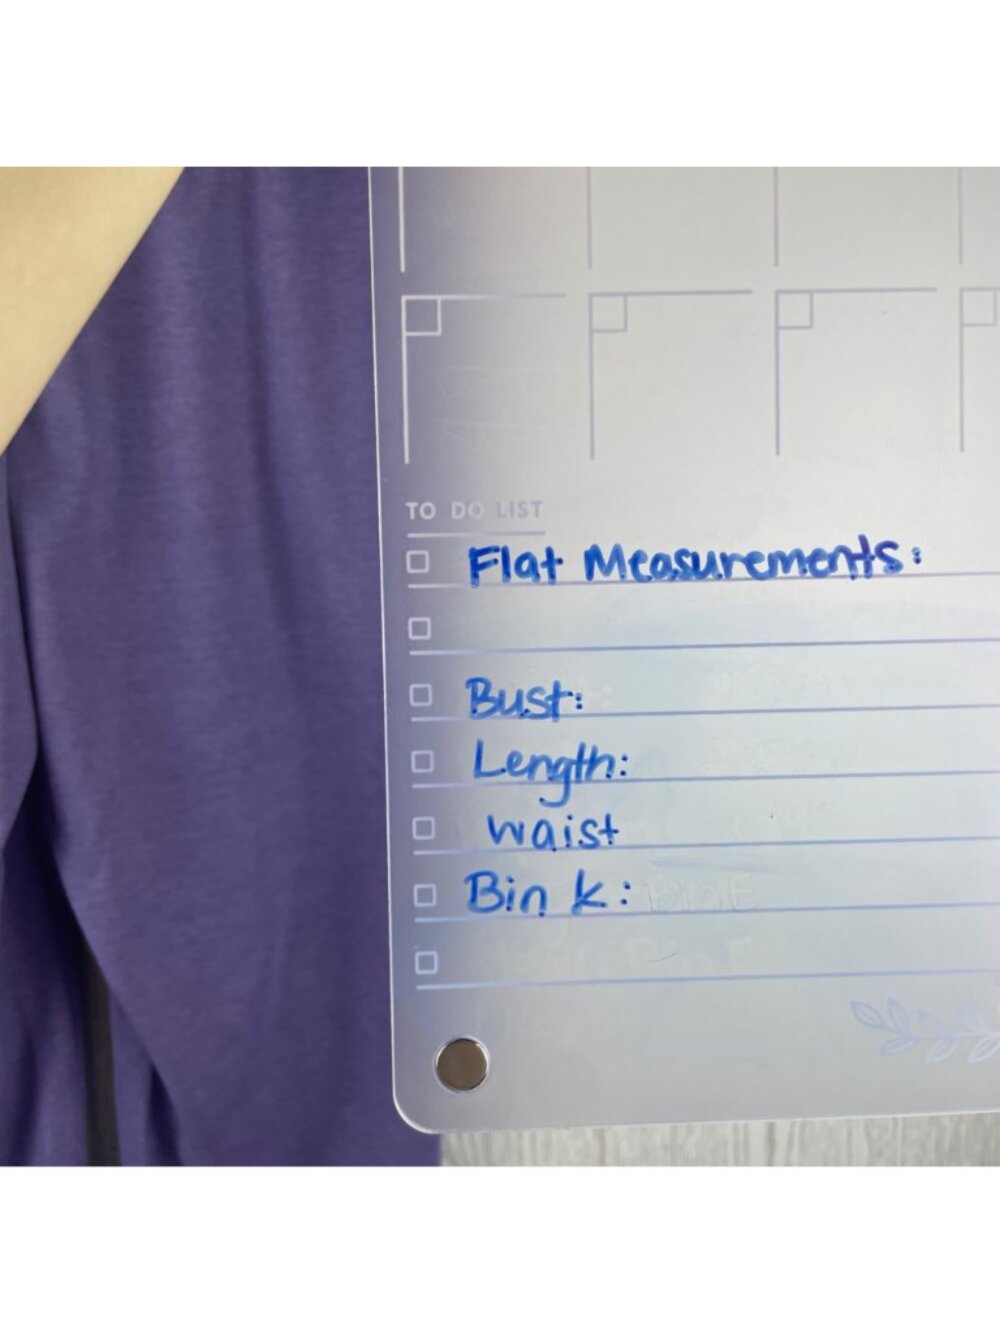 TO DO LIST
Flat Measurements:
Bust:
Length:
waist
Bin k: